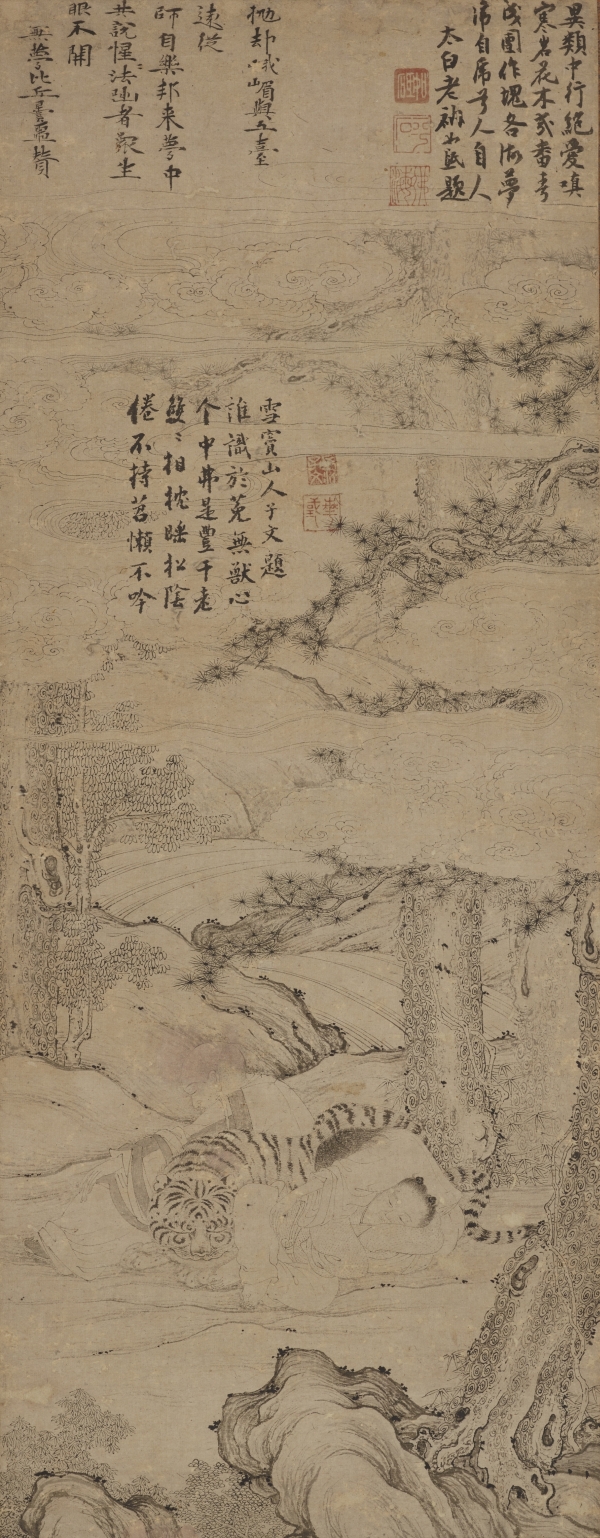 異類中行絕愛嗔
寒岩花木幾番春
成團作塊各做夢
虎自虎兮人自人
太白老衲如砥題
抛却峨嵋與五臺
遠從
師自樂邦来夢中
共說惺〻法者衆生
眼不開
無夢比丘曇噩贊
倦不持苕懶不吟
雙〻相枕睡松陰
个中弗是豐干老
誰識於菟無獸心
雪竇山人子文題